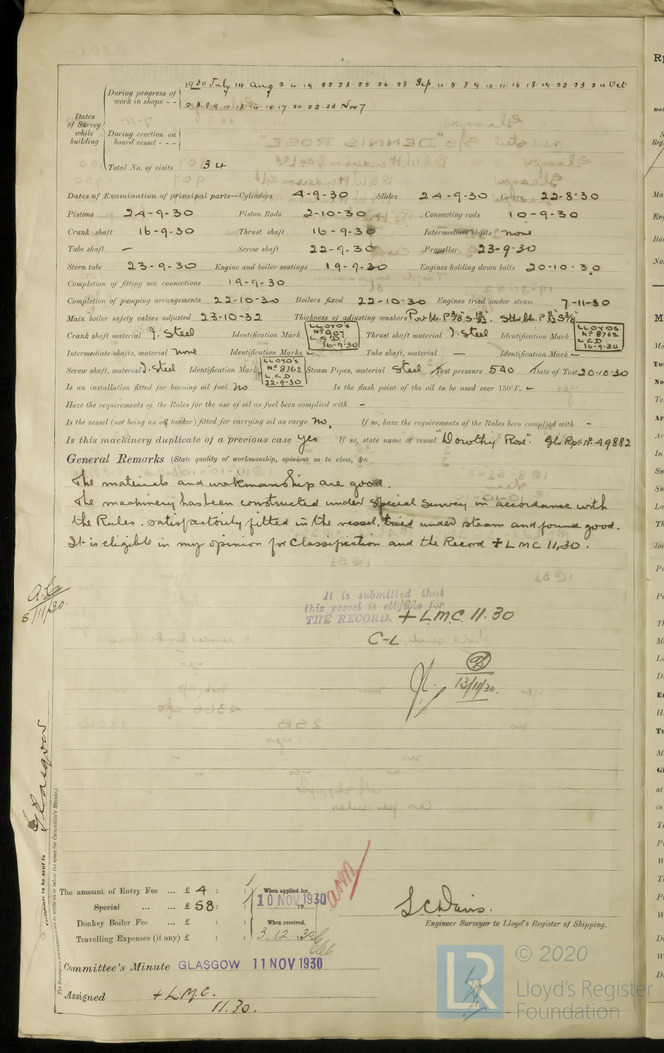 During progress of work in shops - - 1930 July 14 Aug 2 4 19 22 23 25 26 28 Sep 4 5 8 9 10 11 16 18 19 22 23 24 Oct
2 3 8 9 10 13 14 15 17 20 22 23 Nov 7
Dates of Survey while building
During erection on board vessel - - -
Total No. of visits 34
Dates of Examination of principal parts—Cylinders 4-9-30 Slides 24-9-30 Covers 22-8-30
Pistons 24-9-30 Piston Rods 2-10-30 Connecting rods 10-9-30
Crank shaft 16-9-30 Thrust shaft 16-9-30 Intermediate shafts none
Tube shaft – Screw shaft 22-9-30 Propeller 23-9-30
Stern tube 23-9-30 Engine and boiler seatings 19-9-30 Engines holding down bolts 20-10-30
Completion of fitting sea connections 19-9-30
Completion of pumping arrangements 22-10-30 Boilers fixed 22-10-30 Engines tried under steam 7-11-30
Main boiler safety valves adjusted 23-10-32 Thickness of adjusting washers
Crank shaft material I. Steel Identification Mark LLOYD'S No 907 L.C.D. 16-9-30 Thrust shaft material I. Steel Identification Mark LLOYD'S No 8762 L.C.D 16-9-30
Intermediate shafts, material none Identification Marks – Tube shaft, material – Identification Mark –
Screw shaft, material I. Steel Identification Mark LLOYD'S No 8762 L.C.D 22-9-30 Steam Pipes, material Steel Test pressure 540 Date of Test 20-10-30
Is an installation fitted for burning oil fuel no Is the flash point of the oil to be used over 150°F. –
Have the requirements of the Rules for the use of oil as fuel been complied with –
Is the vessel (not being an oil tanker) fitted for carrying oil as cargo no. If so, have the requirements of the Rules been complied with –
Is this machinery duplicate of a previous case yes If so, state name of vessel "Dorothy Rose" Gls Rpt No 49882
General Remarks (State quality of workmanship, opinions as to class, &c.
The materials and workmanship are good.
The machinery has been constructed under special survey in accordance with
the Rules, satisfactorily fitted in the vessel, tried under steam and found good.
It is eligible in my opinion for Classification and the Record + LMC 11,30.
5/11/30.
It is submitted that
this vessel is eligible for
THE RECORD. + LMC. 11.30
C-L.
13/11/30.
Glasgow
Certificate to be sent to
The amount of Entry Fee ... £ 4 : :
Special ... £ 58 : :
Donkey Boiler Fee ... £ : :
Travelling Expenses (if any) £ : :
When applied for, 10 NOV 1930
When received, 3.12.1930
L.C. Davis.
Engineer Surveyor to Lloyd's Register of Shipping.
Committee's Minute GLASGOW 11 NOV 1930
Assigned + L.M.C. 11.30.
LR
© 2020
Lloyd's Register
Foundation